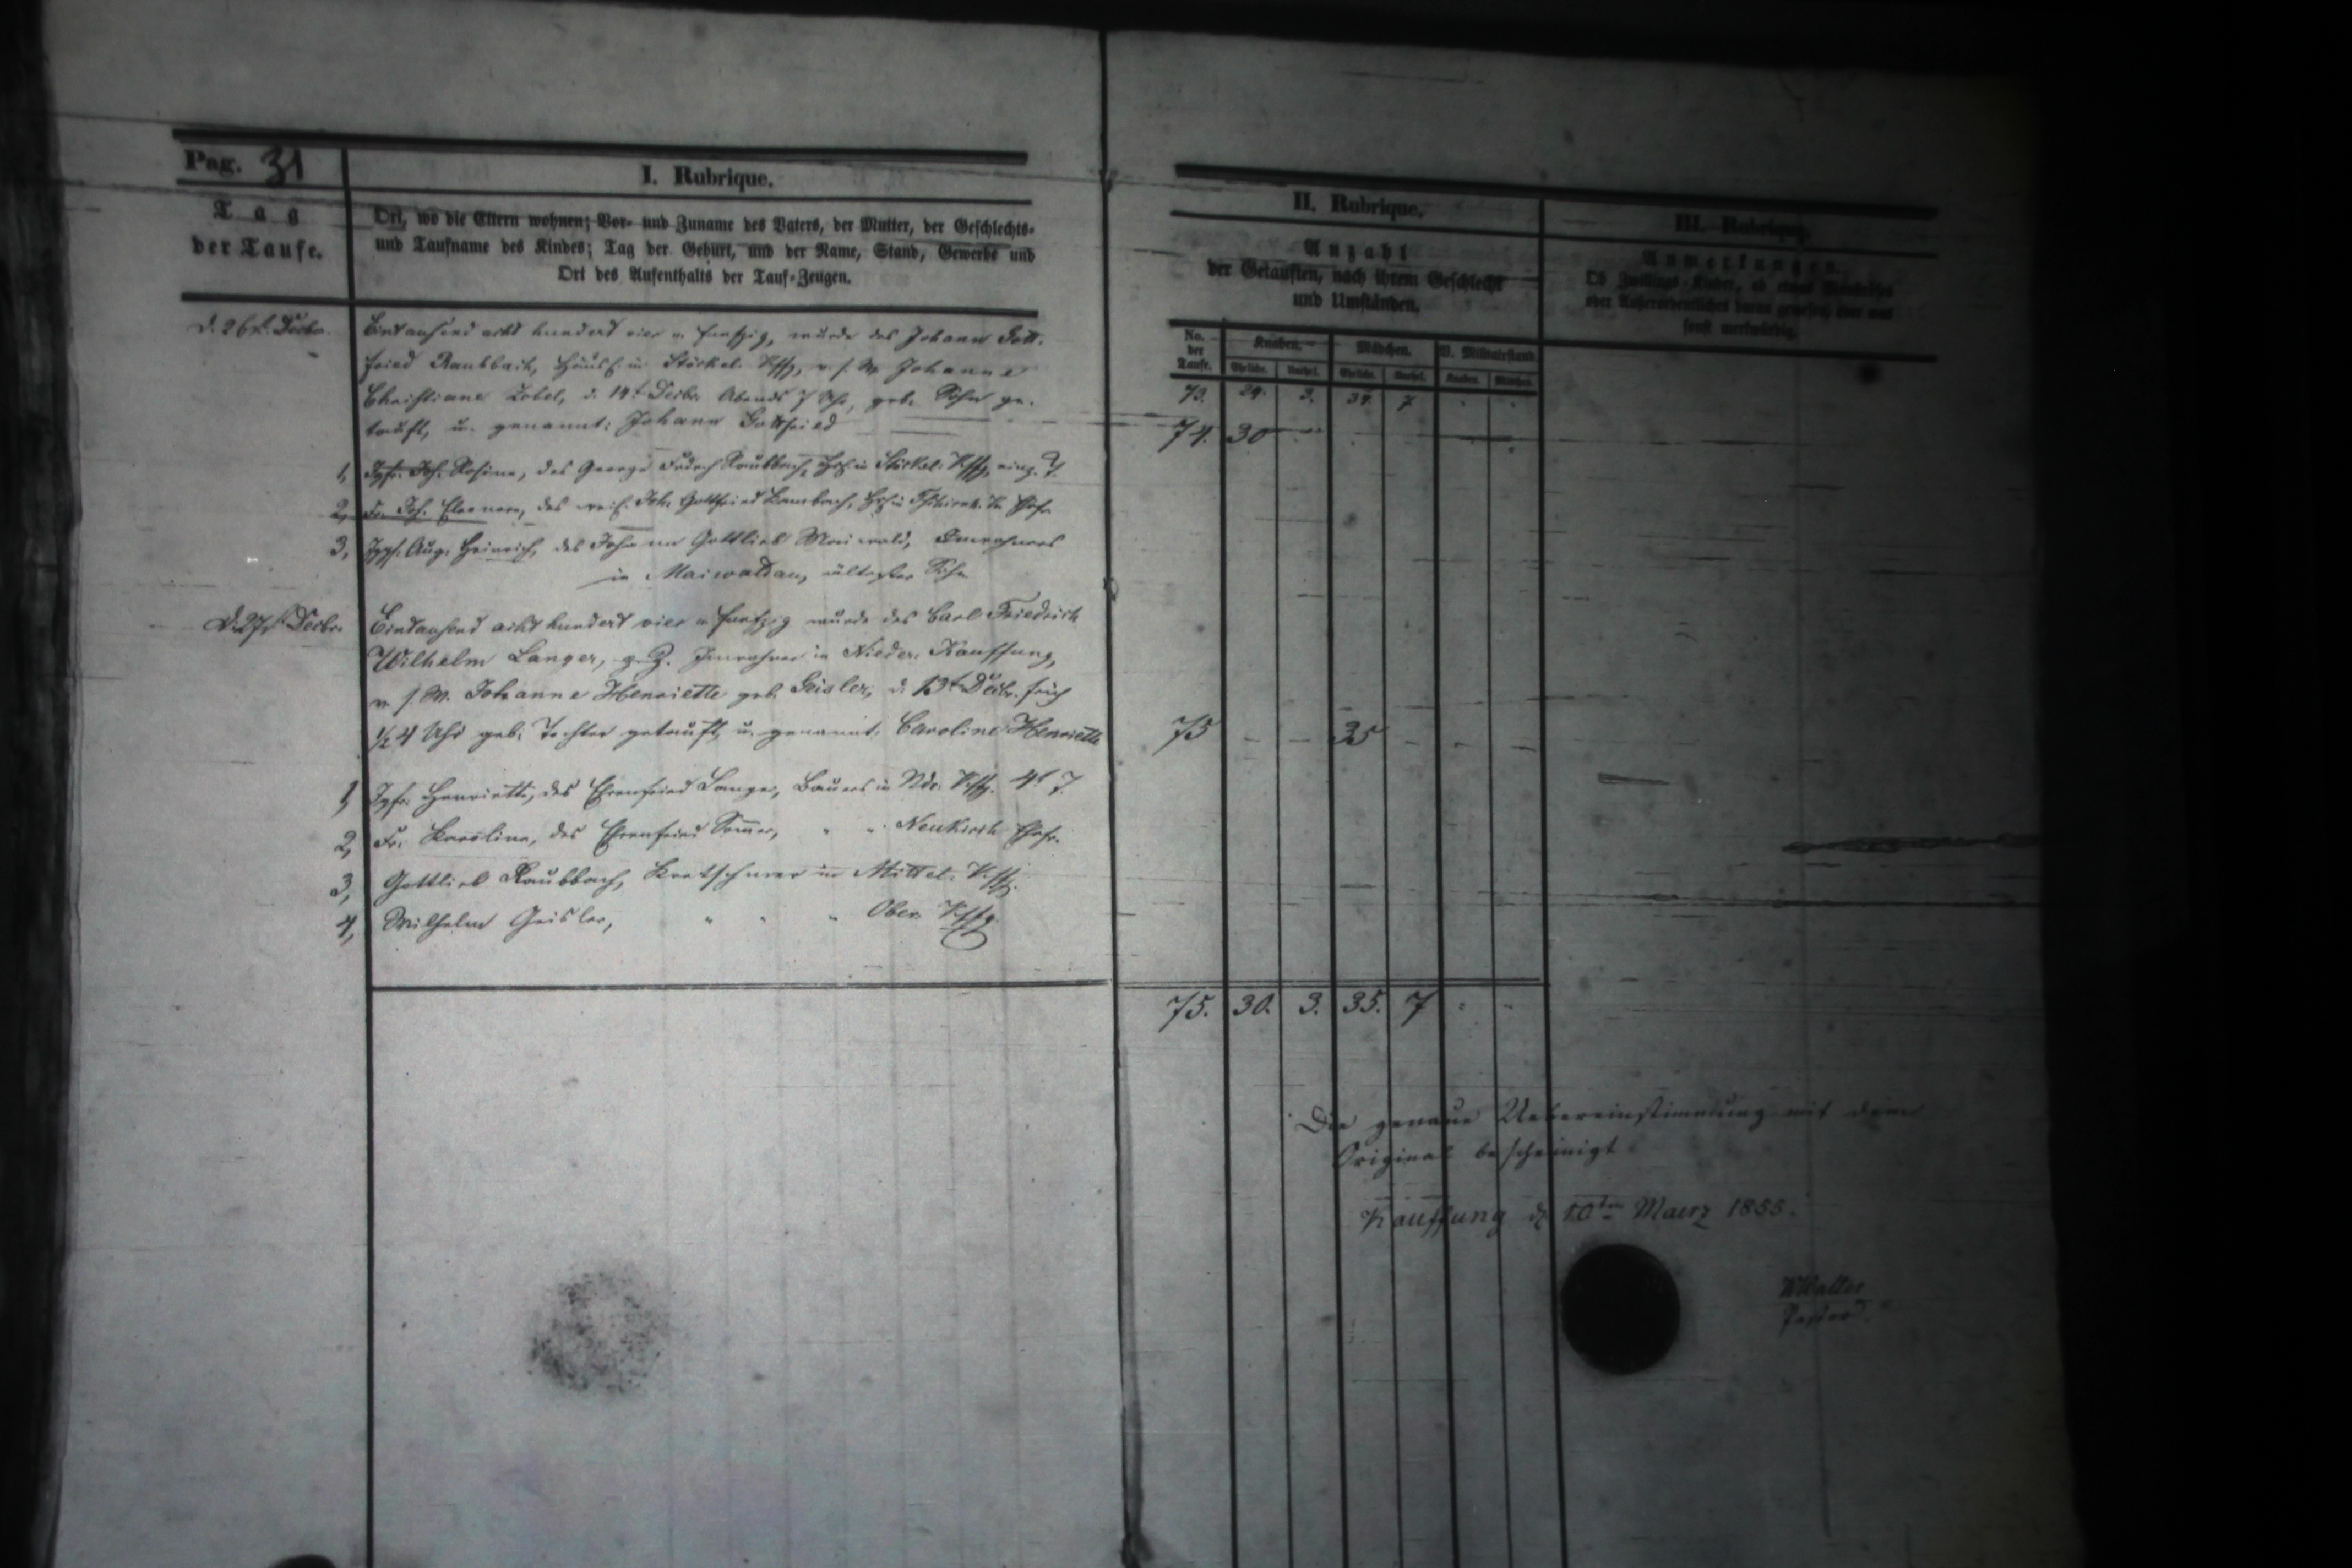 Pag. 31
I. Rubrique.
Tag
der Taufe.
Ort, wo die Eltern wohnen; Vor- und Zuname des Vaters, der Mutter, der Geschlechts-
und Taufname des Kindes; Tag der Geburt, und der Name, Stand, Gewerbe und
Ort des Aufenthalts der Tauf-Zeugen.
II. Rubrique.
Anzahl
der Getauften, nach ihrem Geschlecht
und Umständen.
III. Rubrique.
Anmerkungen.
Ob Zwillings-Kinder, ob etwas
oder Außerordentliches daran gewesen, oder was
sonst merkwürdig.
No.
der
Taufe.
Knaben.
Mädchen.
V. Militairstand.
Ehelich. Unehel. Ehelich. Unehel. Knaben. Mädchen.
73. 29. 3. 34. 7
d. 26t. Decbr.
Eintausend acht hundert vier u. funfzig, wurde des Johann Gott-
fried Raubbach, Häusl. in Stöckel Kffg, u. s. W. Johanne
Christiane Zobel, d. 14t Decbr. Abends 7 Uhr, geb. Sohn ge-
tauft, u. genannt: Johann Gottfried
74. 30
1, Jgfr. Joh. Rosina, des George Friedrich Raubbach, in Stöckel Kffg, einz. T.
2, Fr. Joh. Eleonore, des weil. Joh. Gottfried Hfr.
3, Jggs. Aug. Heinrich, des Johann Gottlieb Maiwald, Inwohners
in Maiwaldau, ältester Sohn
D. 27t. Decbr.
Eintausend acht hundert vier u. funfzig wurde des Carl Friedrich
Wilhelm Langer, z. Z. Inwohner in Nieder-Kauffung,
u. s. W. Johanne Henriette geb. Geisler, d. 13t Decbr. früh
1/2 4 Uhr geb. Tochter getauft, u. genannt: Caroline Henriette
75 - - 35 - - -
1, Jgfr. Henriette, des Ehrenfried Langer, Bauers in Ndr. Kffg. 4t T.
2, Fr. Karoline, des Ehrenfried Sommer, " " Neukirch Ehefr.
3, Gottlieb Raubbach, Kretschmer in Mittel-Kffg.
4, Wilhelm Geisler, " " " Ober Kffg.
75. 30. 3. 35. 7
Die genaue Uebereinstimmung mit dem
Original bescheinigt
Kauffung d. 10ten Maerz 1855.
Walter
Pastor